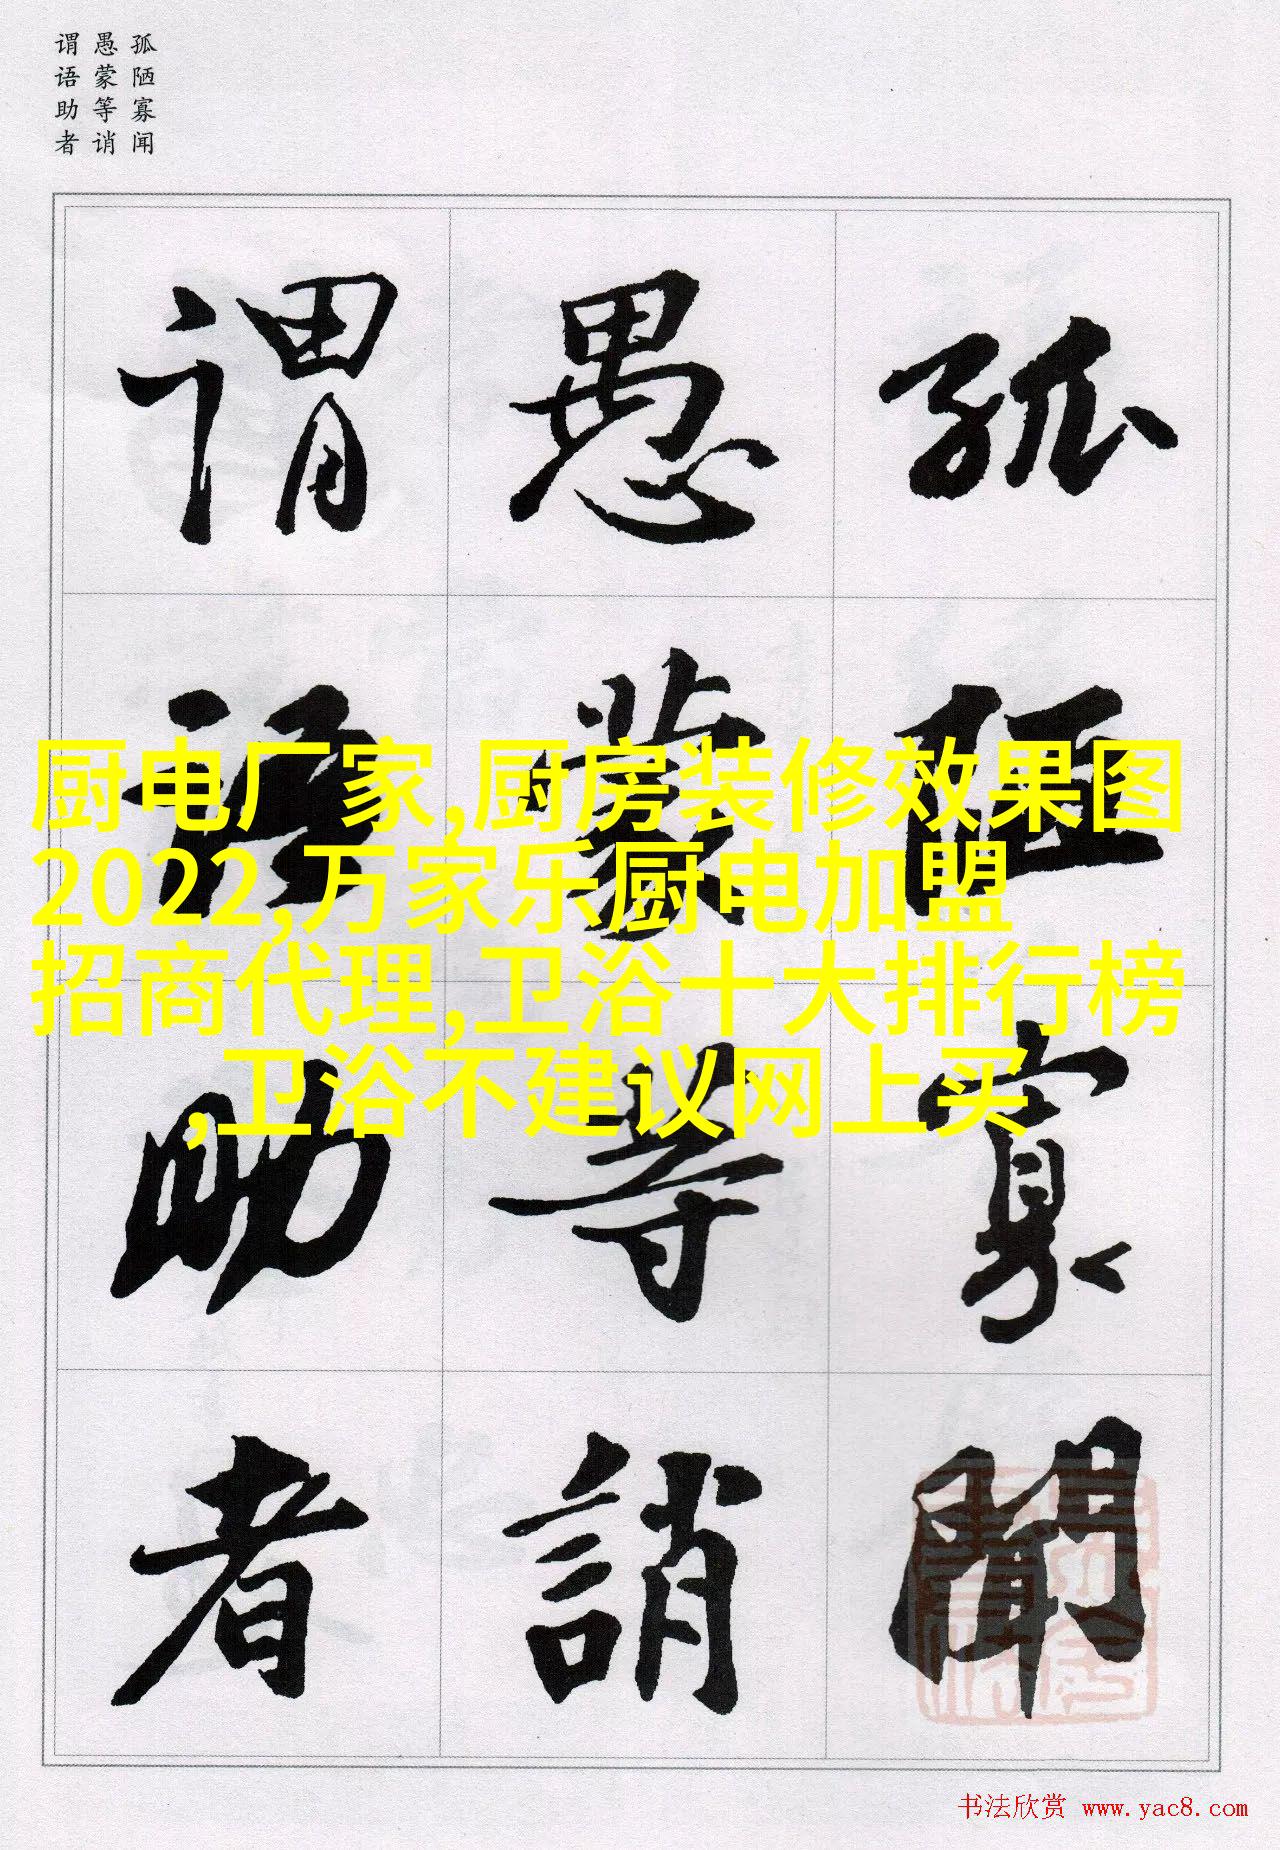 孤陋寡闻
愚蒙等诮
谓语助者
孤陋寡聞
愚蒙等誚
谓语助者
厨电厂家,厨房装修效果图
2022,万家乐厨电加盟
招商代理,卫浴十大排行榜
,卫浴不建议网上买
书法欣赏 www.yac8.com